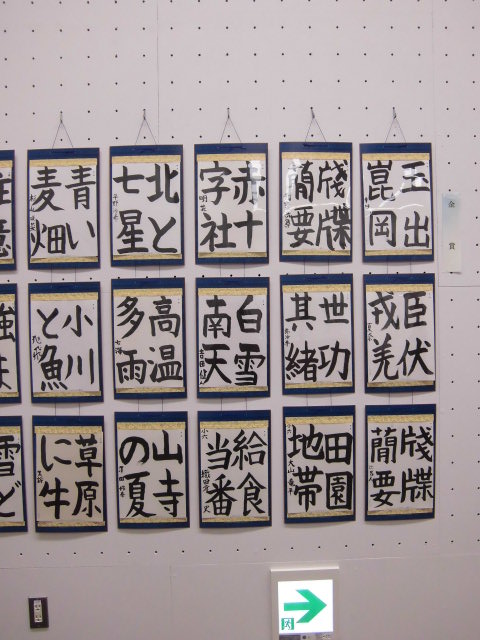 金賞
玉出
崑岡
牋牒
簡要
赤十
字社
北と
七星
青い
麦畑
臣伏
戎羌
世功
其緒
白雪
南天
高温
多雨
小川
と魚
牋牒
簡要
田園
地帯
給食
当番
山寺
の夏
草原
に牛
雪ど